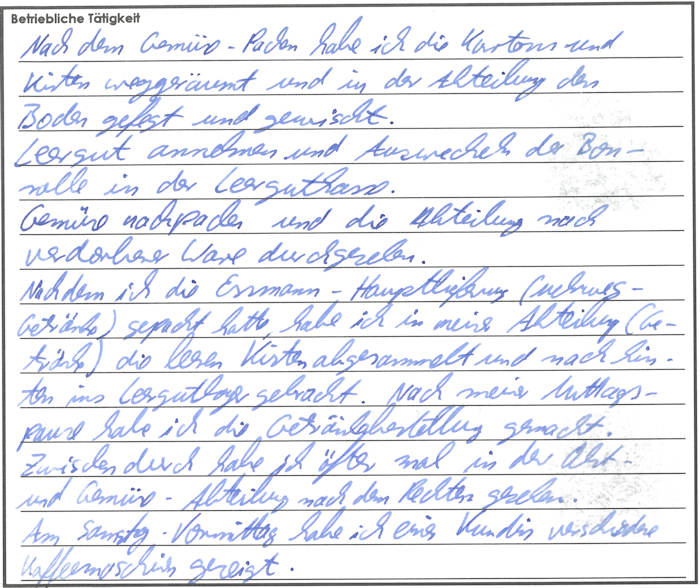 Betriebliche Tätigkeit
Nach dem Gemüse-Packen habe ich die Kartons und
Kisten weggeräumt und in der Abteilung den
Boden gefegt und gewischt.
Leergut annehmen und Auswechseln der Bon-
rolle in der Leergutkasse.
Gemüse nachpacken und die Abteilung nach
verdorbener Ware durchgesehen.
Nachdem ich die Essmann-Hauptlieferung (Mehrweg-
Getränke) gepackt hatte, habe ich in meiner Abteilung (Ge-
tränke) die leeren Kisten abgesammelt und nach hin-
ten ins Leergutlager gebracht. Nach meiner Mittags-
pause habe ich die Getränkebestellung gemacht.
Zwischendurch habe ich öfter mal in der Obst-
und Gemüse-Abteilung nach dem Rechten gesehen.
Am Samstag-Vormittag habe ich einer Kundin verschiedene
Kaffeemaschinen gezeigt.